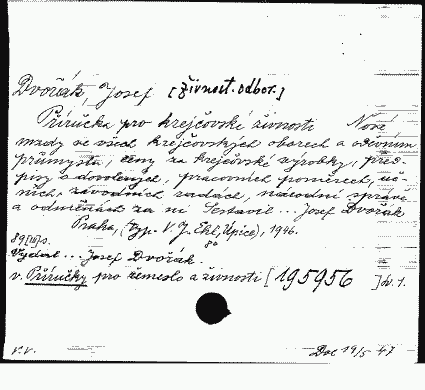 Dvořák, Josef [živnost. odbor.]
Příručka pro krejčovské živnosti Nové
mzdy ve všech krejčovských oborech a oděvním
průmyslu, ceny za krejčovské výrobky, před-
pisy o dovolených, pracovních poměrech, uč-
ních, závodních radách, národní správě
a odměnách za ni Sestavil ... Josef Dvořák
Praha, (typ. V. J. Ekl, Úpice), 1946.
89 [III] s. 8°
Vydal ... Josef Dvořák.
v. Příručky pro řemeslo a živnosti [195956 ] dv. 1.
v.v. Doc 19/5 47